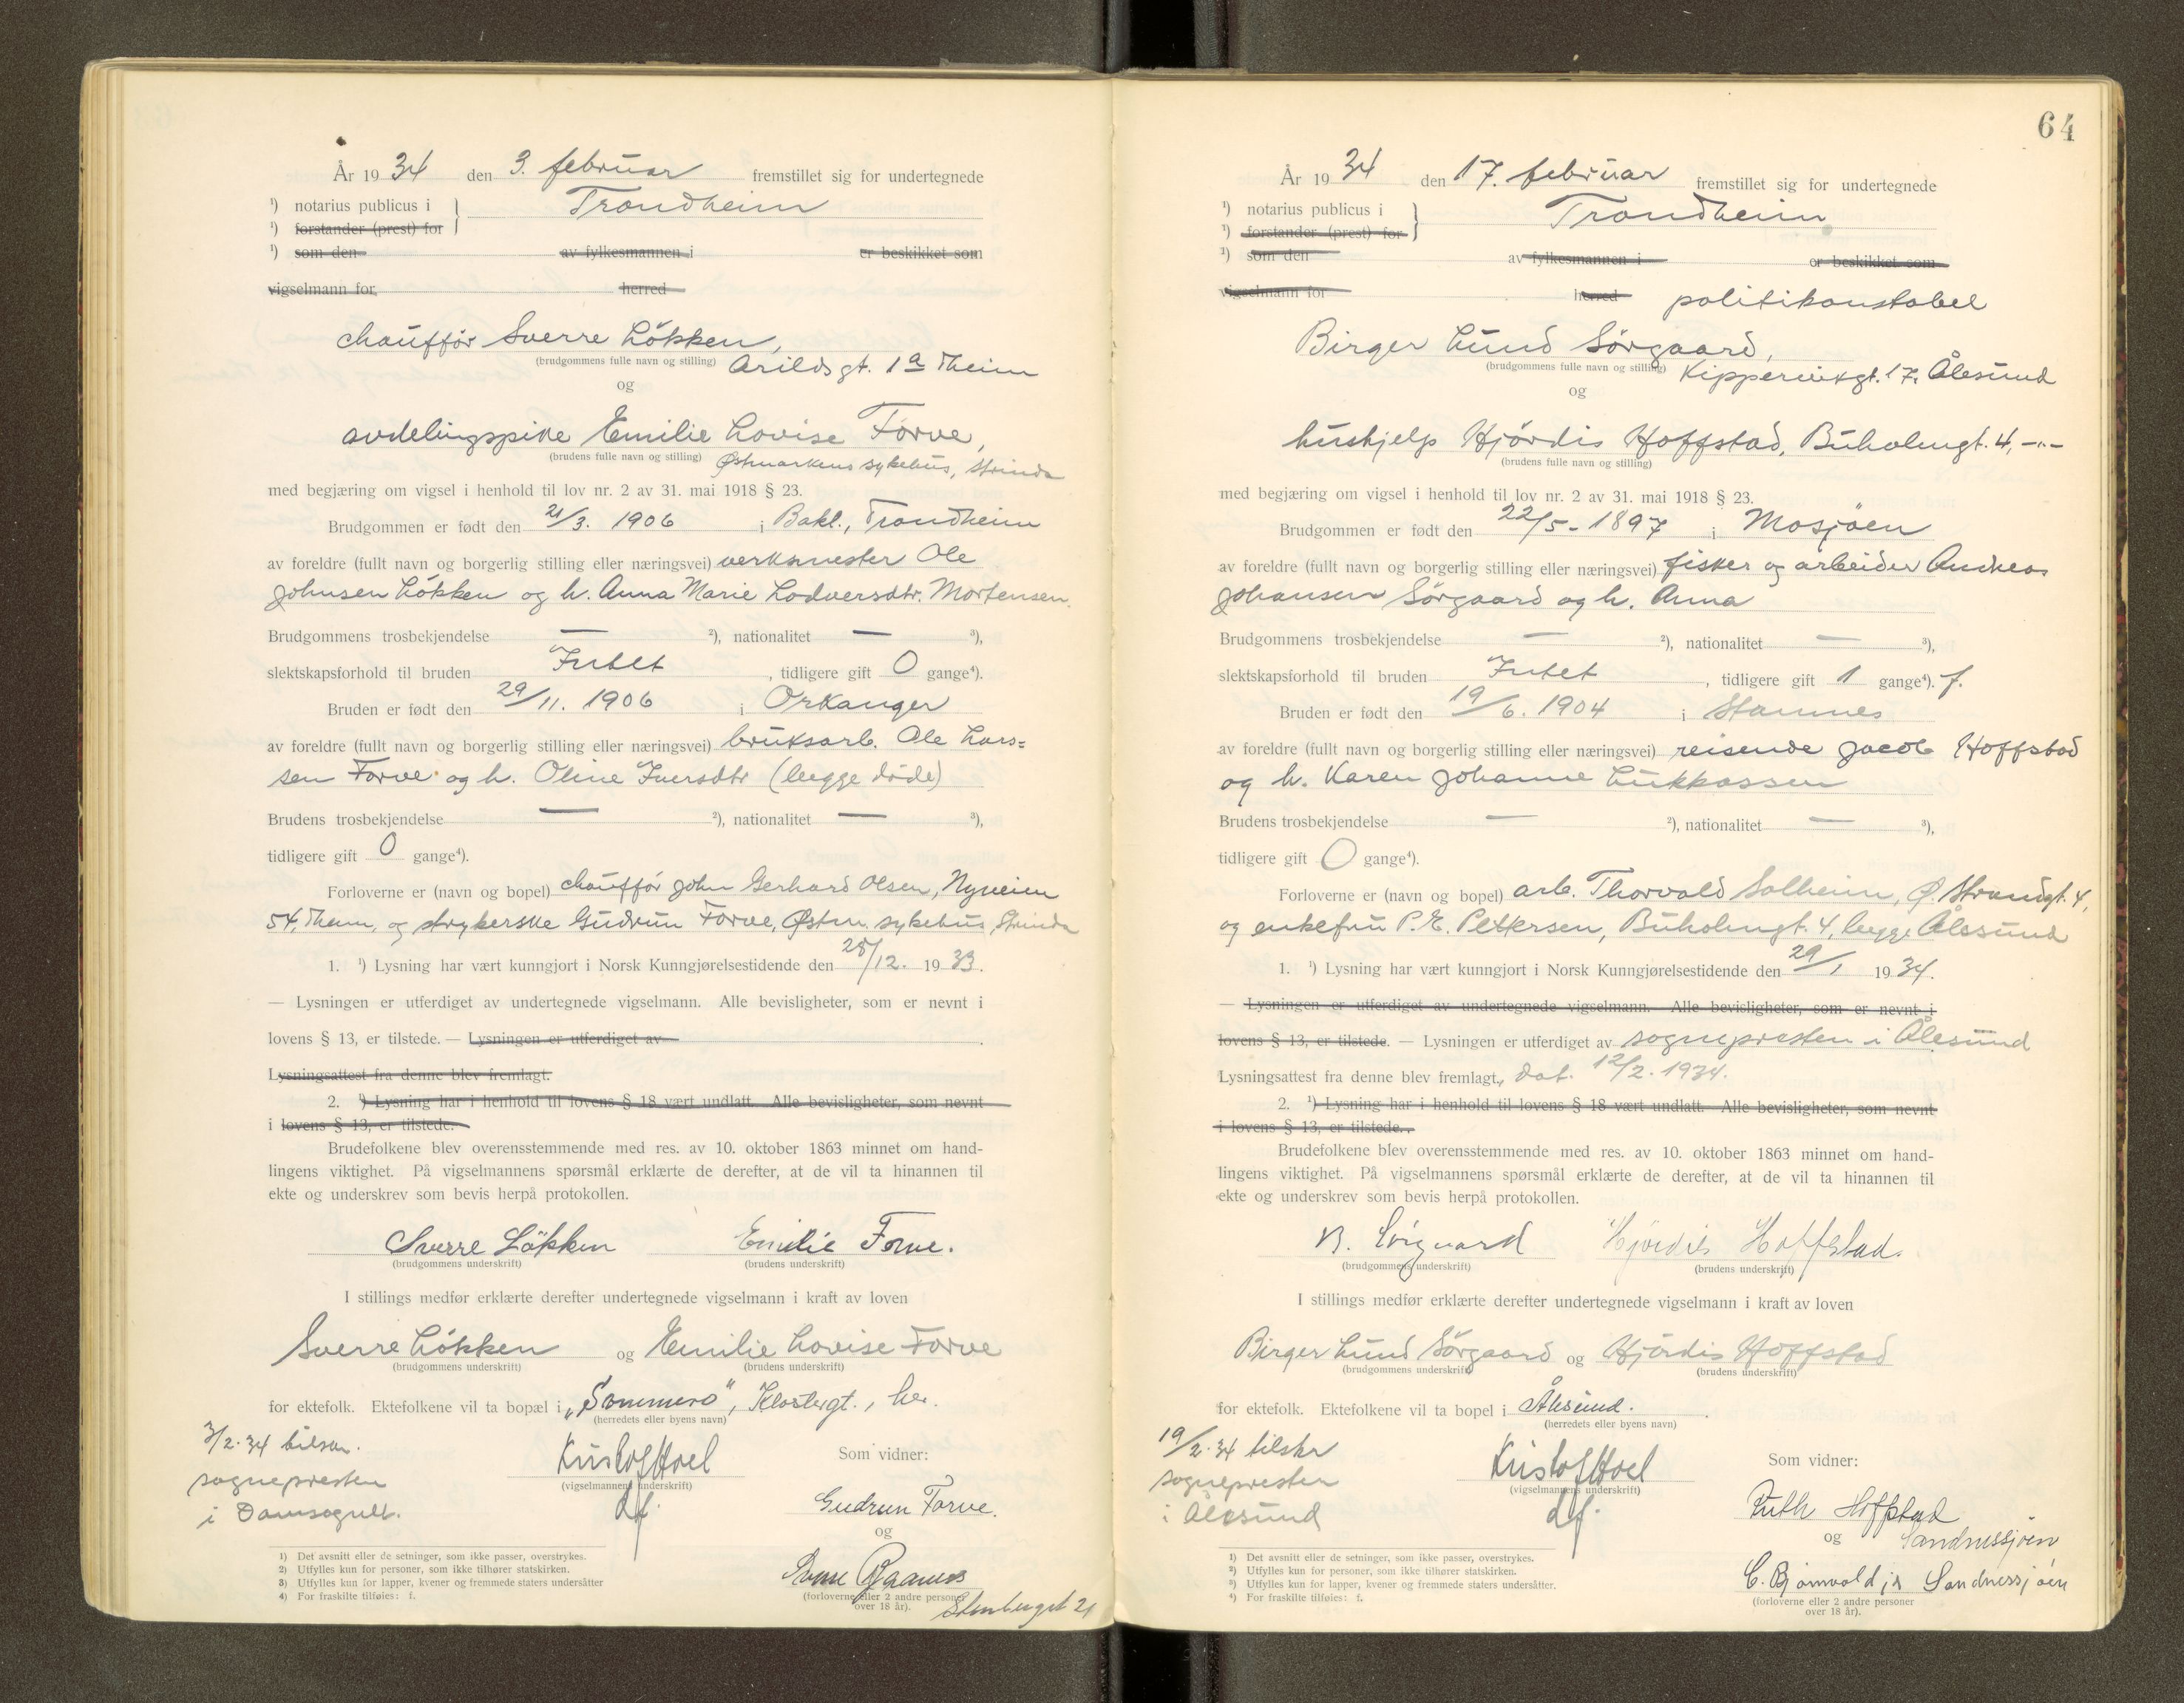 År 1934 den 3. februar fremstillet sig for undertegnede
¹) notarius publicus i } Trondheim
¹) forstander (prest) for
¹) som den av fylkesmannen i er beskikket som
vigselmann for herred
chauffør Sverre Løkken,
(brudgommens fulle navn og stilling) Arildsgt. 1a Theim
og
avdelingspike Emilie Lovise Forve,
(brudens fulle navn og stilling) Østmarkens sykehus, Strinda
med begjæring om vigsel i henhold til lov nr. 2 av 31. mai 1918 § 23.
Brudgommen er født den 21/3. 1906 i Bakl., Trondheim
av foreldre (fullt navn og borgerlig stilling eller næringsvei) verksmester Ole
Johnsen Løkken og h. Anna Marie Lodversdtr. Mortensen.
Brudgommens trosbekjendelse — ²), nationalitet — ³),
slektskapsforhold til bruden Intet, tidligere gift 0 gange⁴).
Bruden er født den 29/11. 1906 i Orkanger
av foreldre (fullt navn og borgerlig stilling eller næringsvei) bruksarb. Ole Lars=
sen Forve og h. Oline Iversdtr (begge døde)
Brudens trosbekjendelse — ²), nationalitet — ³),
tidligere gift 0 gange⁴).
Forloverne er (navn og bopel) chauffør John Gerhard Olsen, Nyveien
54, Theim, og strykerske Gudrun Forve, Østm. sykehus, Strinda
1. ¹) Lysning har vært kunngjort i Norsk Kunngjørelsestidende den 28/12. 1933.
— Lysningen er utferdiget av undertegnede vigselmann. Alle bevisligheter, som er nevnt i
lovens § 13, er tilstede. — Lysningen er utferdiget av .
Lysningsattest fra denne blev fremlagt.
2. ¹) Lysning har i henhold til lovens § 18 vært undlatt. Alle bevisligheter, som nevnt
i lovens § 13, er tilstede.
Brudefolkene blev overensstemmende med res. av 10. oktober 1863 minnet om hand-
lingens viktighet. På vigselmannens spørsmål erklærte de derefter, at de vil ta hinannen til
ekte og underskrev som bevis herpå protokollen.
Sverre Løkken Emilie Forve.
(brudgommens underskrift) (brudens underskrift)
I stillings medfør erklærte derefter undertegnede vigselmann i kraft av loven
Sverre Løkken og Emilie Lovise Forve
(brudgommens underskrift) (brudens underskrift)
for ektefolk. Ektefolkene vil ta bopæl i „Sommero", Klostergt., her.
(herredets eller byens navn)
3/2.34 tilskr.
sognepresten
i Domsognet.
Kristof Hoel
(vigselmannens underskrift)
df.
Som vidner:
Gudrun Forve.
og
(forloverne eller 2 andre personer
over 18 år).
¹) Det avsnitt eller de setninger, som ikke passer, overstrykes.
²) Utfylles kun for personer, som ikke tilhører statskirken.
³) Utfylles kun for lapper, kvener og fremmede staters undersåtter
⁴) For fraskilte tilføies: f.
64
År 1934 den 17. februar fremstillet sig for undertegnede
¹) notarius publicus i } Trondheim
¹) forstander (prest) for
¹) som den av fylkesmannen i er beskikket som
vigselmann for herred politikonstabel
Birger Lund Sørgaard,
(brudgommens fulle navn og stilling) Kippervikgt. 17, Ålesund
og
hushjelp Hjørdis Hoffstad, Buholmgt. 4, -"-
(brudens fulle navn og stilling)
med begjæring om vigsel i henhold til lov nr. 2 av 31. mai 1918 § 23.
Brudgommen er født den 22/5- 1897 i Mosjøen
av foreldre (fullt navn og borgerlig stilling eller næringsvei) fisker og arbeider Andreas
Johansen Sørgaard og h. Anna
Brudgommens trosbekjendelse — ²), nationalitet — ³),
slektskapsforhold til bruden Intet, tidligere gift 1 gange⁴). f.
Bruden er født den 19/6. 1904 i Stamnes
av foreldre (fullt navn og borgerlig stilling eller næringsvei) reisende Jacob Hoffstad
og h. Karen Johanne Lukkassen
Brudens trosbekjendelse — ²), nationalitet — ³),
tidligere gift 0 gange⁴).
Forloverne er (navn og bopel) arb. Thorvald Solheim, Ø. Strandgt. 4,
og enkefru P. E. Pettersen, Buholmgt. 4, begge Ålesund
1. ¹) Lysning har vært kunngjort i Norsk Kunngjørelsestidende den 29/1 1934.
— Lysningen er utferdiget av undertegnede vigselmann. Alle bevisligheter, som er nevnt i
lovens § 13, er tilstede. — Lysningen er utferdiget av sognepresten i Ålesund
Lysningsattest fra denne blev fremlagt., dat. 12/2. 1934.
2. ¹) Lysning har i henhold til lovens § 18 vært undlatt. Alle bevisligheter, som nevnt
i lovens § 13, er tilstede.
Brudefolkene blev overensstemmende med res. av 10. oktober 1863 minnet om hand-
lingens viktighet. På vigselmannens spørsmål erklærte de derefter, at de vil ta hinannen til
ekte og underskrev som bevis herpå protokollen.
B. Sørgaard Hjørdis Hoffstad.
(brudgommens underskrift) (brudens underskrift)
I stillings medfør erklærte derefter undertegnede vigselmann i kraft av loven
Birger Lund Sørgaard og Hjørdis Hoffstad
(brudgommens underskrift) (brudens underskrift)
for ektefolk. Ektefolkene vil ta bopel i Ålesund.
(herredets eller byens navn)
19/2.34 tilskr
sognepresten
i Ålesund
Kristof Hoel
(vigselmannens underskrift)
df.
Som vidner:
Ruth Hoffstad
og Sandnessjøen
C. Bjørnvold jr Sandnessjøen
(forloverne eller 2 andre personer
over 18 år).
¹) Det avsnitt eller de setninger, som ikke passer, overstrykes.
²) Utfylles kun for personer, som ikke tilhører statskirken.
³) Utfylles kun for lapper, kvener og fremmede staters undersåtter.
⁴) For fraskilte tilføies: f.